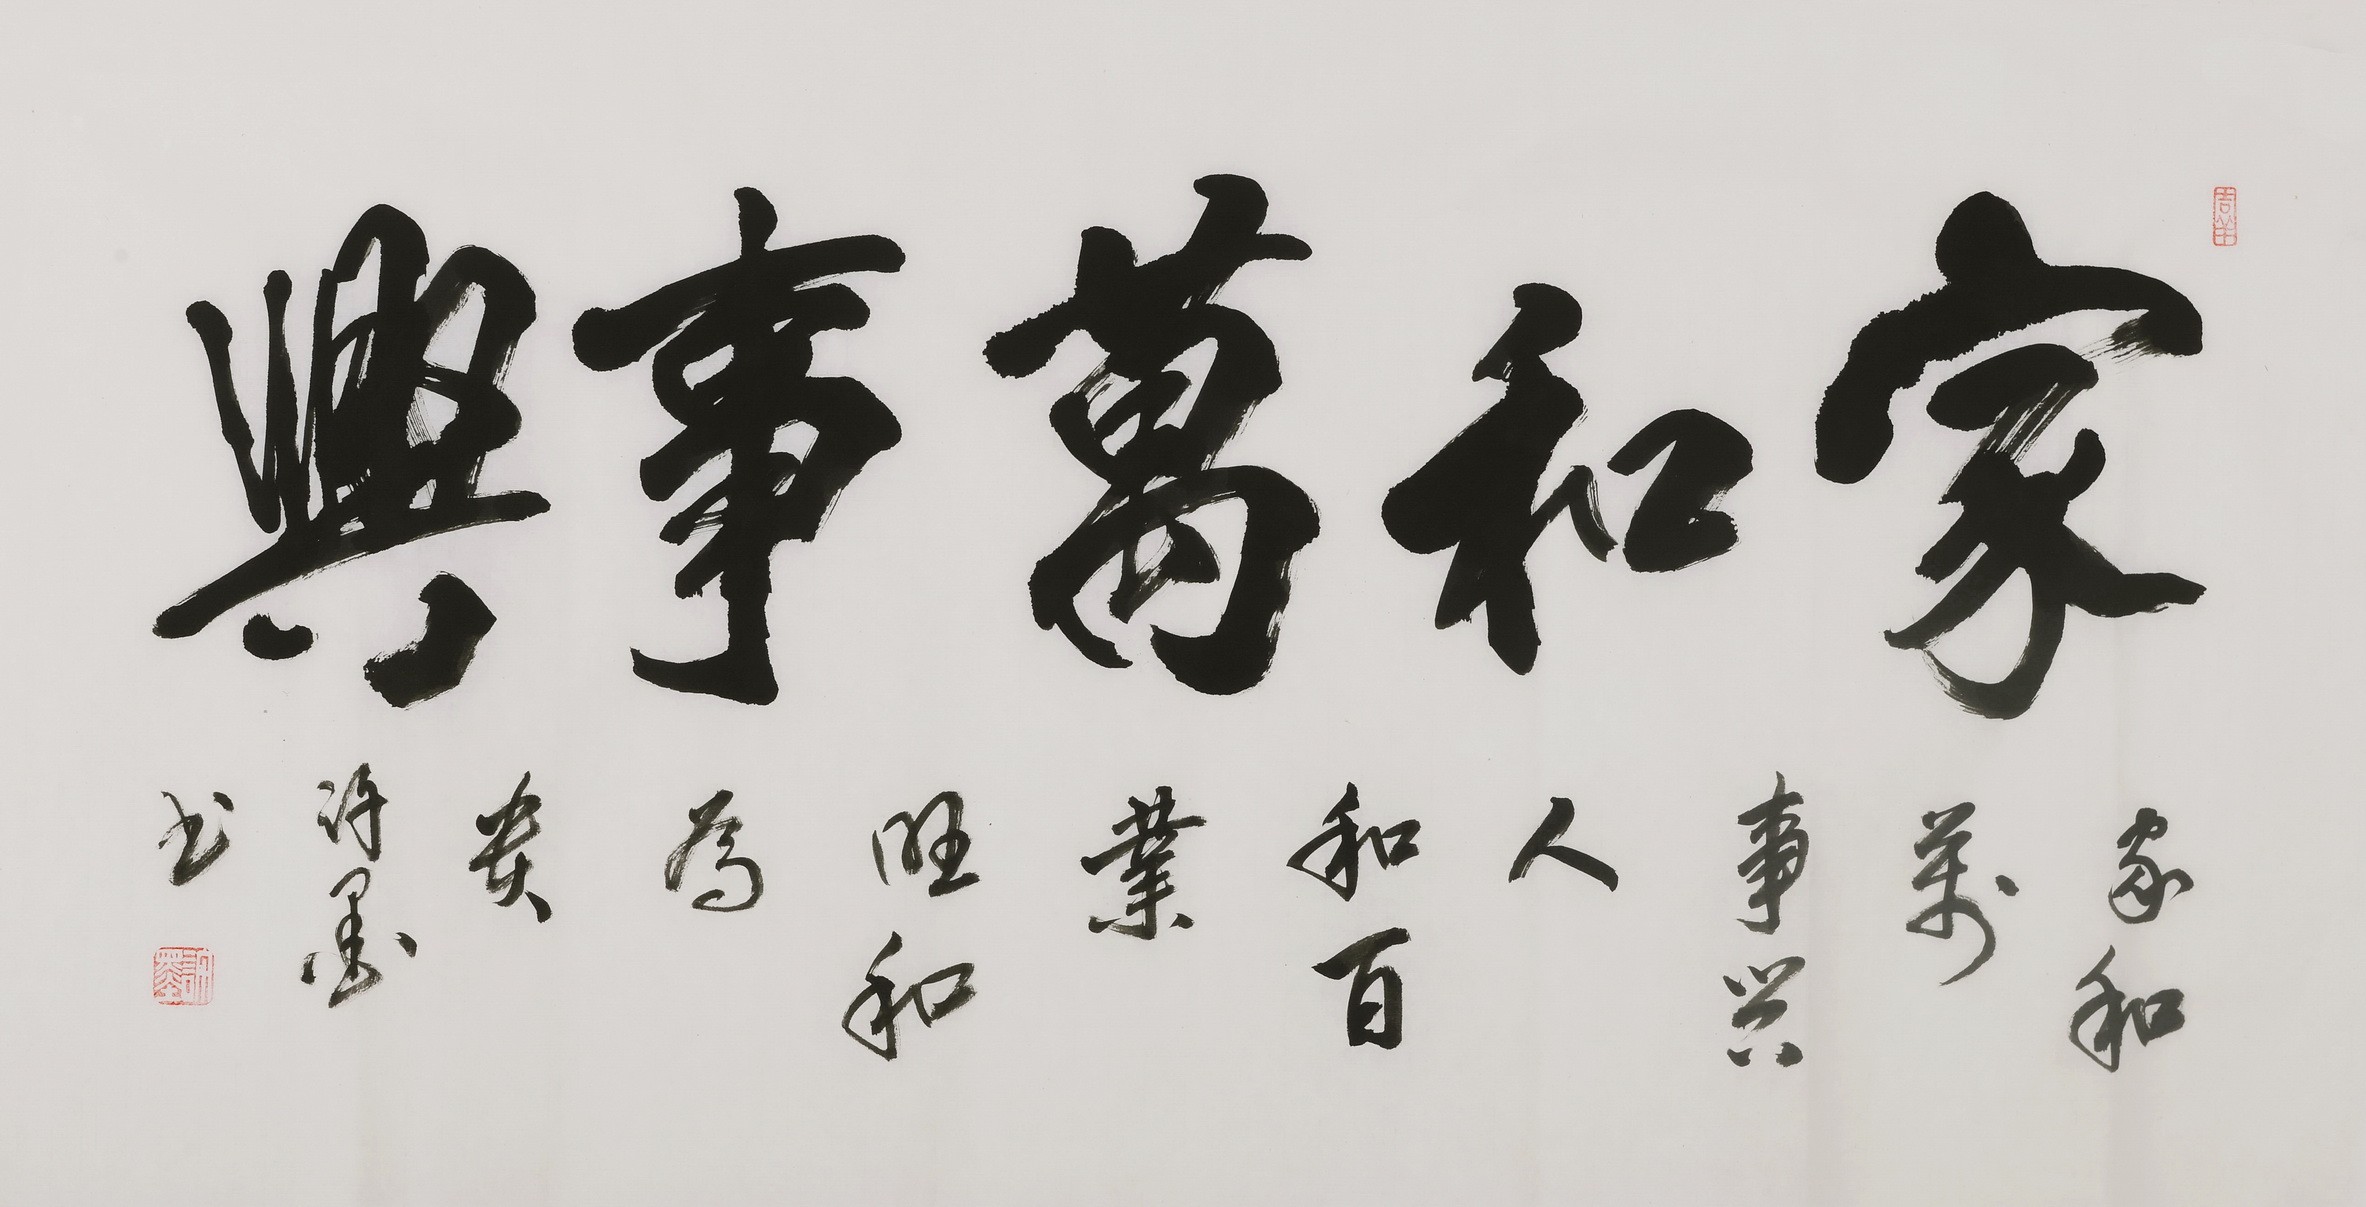 家和萬事興
家和
萬
事興
人
和百
業
旺和
為
貴
許墨
书
許墨